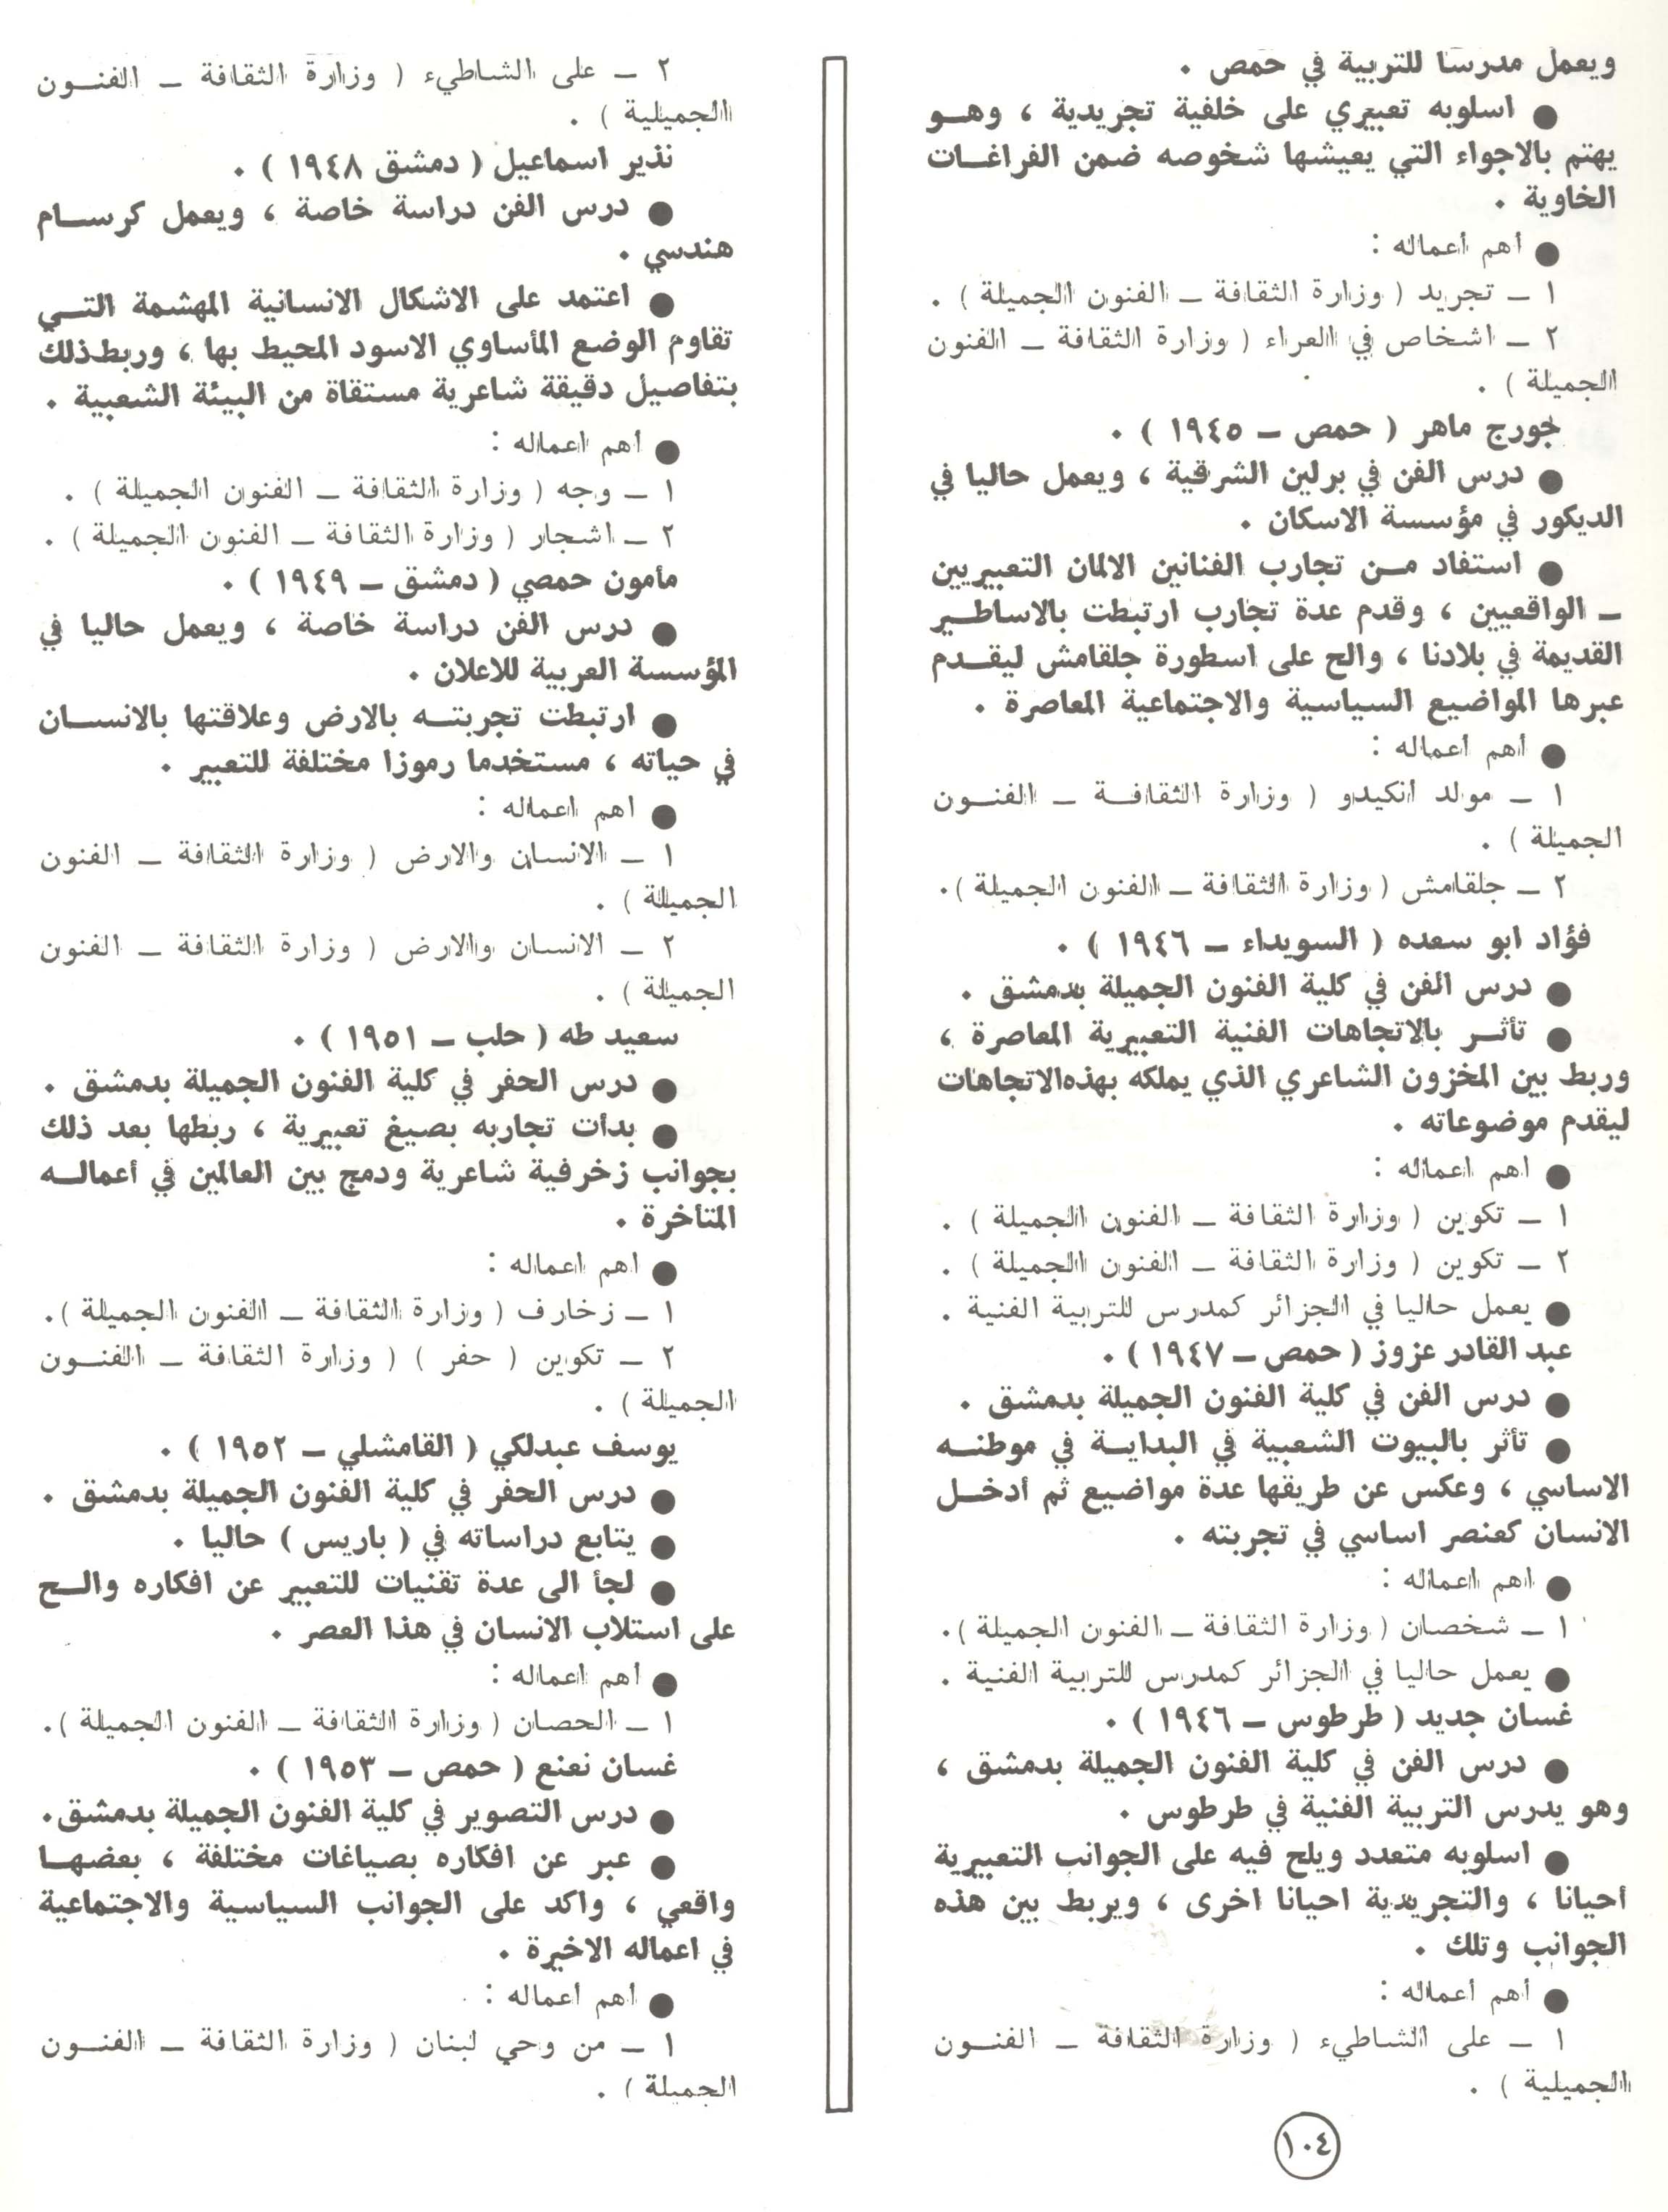 ويعمل مدرسا للتربية في حمص .
● اسلوبه تعبيري على خلفية تجريدية ، وهـو
يهتم بالاجواء التي يعيشها شخوصه ضمن الفراغـات
الخاوية .
● أهم أعماله :
١ ـ تجريد ( وزارة الثقافة ـ الفنون الجميلة ) .
٢ ـ اشخاص في العراء ( وزارة الثقافة ـ الفنون
الجميلة ) .
جورج ماهر ( حمص ـ ١٩٤٥ ) .
● درس الفن في برلين الشرقية ، ويعمل حاليا في
الديكور في مؤسسة الاسكان .
● استفاد مـن تجارب الفنانين الالمان التعبيريين
ـ الواقعيين ، وقدم عدة تجارب ارتبطت بالاساطـير
القديمة في بلادنا ، والح على اسطورة جلقامش ليقـدم
عبرها المواضيع السياسية والاجتماعية المعاصرة .
● أهم أعماله :
١ ـ مولد أنكيدو ( وزارة الثقافـة ـ الفنـون
الجميلة ) .
٢ ـ جلقامش ( وزارة الثقافة ـ الفنون الجميلة ).
فؤاد ابو سعده ( السويداء ـ ١٩٤٦ ) .
● درس الفن في كلية الفنون الجميلة بدمشق .
● تأثـر بالاتجاهات الفنية التعبيرية المعاصرة ،
وربط بين المخزون الشاعري الذي يملكه بهذه الاتجاهات
ليقدم موضوعاته .
● اهم اعماله :
١ ـ تكوين ( وزارة الثقافة ـ الفنون الجميلة ) .
٢ ـ تكوين ( وزارة الثقافة ـ الفنون الجميلة ) .
● يعمل حاليا في الجزائر كمدرس للتربية الفنية .
عبد القادر عزوز ( حمص ـ ١٩٤٧ ) .
● درس الفن في كلية الفنون الجميلة بدمشق .
● تأثر بالبيوت الشعبية في البدايـة في موطنـه
الاساسي ، وعكس عن طريقها عدة مواضيع ثم أدخـل
الانسان كعنصر اساسي في تجربته .
● اهم اعماله :
١ ـ شخصان ( وزارة الثقافة ـ الفنون الجميلة ).
● يعمل حاليا في الجزائر كمدرس للتربية الفنية .
غسان جديد ( طرطوس ـ ١٩٤٦ ) .
● درس الفن في كلية الفنون الجميلة بدمشق ،
وهو يدرس التربية الفنية في طرطوس .
● اسلوبه متعدد ويلح فيه على الجوانب التعبيرية
أحيانا ، والتجريدية احيانا اخرى ، ويربط بين هذه
الجوانب وتلك .
● أهم أعماله :
١ ـ على الشاطيء ( وزارة الثقافة ـ الفنـون
الجميلية ) .
٢ ـ على الشاطيء ( وزارة الثقافة ـ الفنـون
الجميلية ) .
نذير اسماعيل ( دمشق ١٩٤٨ ) .
● درس الفن دراسة خاصة ، ويعمل كرسـام
هندسي .
● اعتمد على الاشكال الانسانية المهشمة التـي
تقاوم الوضع المأساوي الاسود المحيط بها ، وربط ذلك
بتفاصيل دقيقة شاعرية مستقاة من البيئة الشعبية .
● أهم اعماله :
١ ـ وجه ( وزارة الثقافة ـ الفنون الجميلة ) .
٢ ـ اشجار ( وزارة الثقافة ـ الفنون الجميلة ) .
مأمون حمصي ( دمشق ـ ١٩٤٩ ) .
● درس الفن دراسة خاصة ، ويعمل حاليا في
المؤسسة العربية للاعلان .
● ارتبطت تجربتـه بالارض وعلاقتها بالانسـان
في حياته ، مستخدما رموزا مختلفة للتعبير .
● اهم اعماله :
١ ـ الانسان والارض ( وزارة الثقافة ـ الفنون
الجميلة ) .
٢ ـ الانسان والارض ( وزارة الثقافة ـ الفنون
الجميلة ) .
سعيد طه ( حلب ـ ١٩٥١ ) .
● درس الحفر في كلية الفنون الجميلة بدمشق .
● بدأت تجاربه بصيغ تعبيرية ، ربطها بعد ذلك
بجوانب زخرفية شاعرية ودمج بين العالمين في أعمالـه
المتأخرة .
● اهم اعماله :
١ ـ زخارف ( وزارة الثقافة ـ الفنون الجميلة ).
٢ ـ تكوين ( حفر ) ( وزارة الثقافة ـ الفنـون
الجميلة ) .
يوسف عبدلكي ( القامشلي ـ ١٩٥٢ ) .
● درس الحفر في كلية الفنون الجميلة بدمشق .
● يتابع دراساته في ( باريس ) حاليا .
● لجأ الى عدة تقنيات للتعبير عن افكاره والـح
على استلاب الانسان في هذا العصر .
● أهم اعماله :
١ ـ الحصان ( وزارة الثقافة ـ الفنون الجميلة ).
غسان نعنع ( حمص ـ ١٩٥٣ ) .
● درس التصوير في كلية الفنون الجميلة بدمشق.
● عبر عن افكاره بصياغات مختلفة ، بعضهـا
واقعي ، واكد على الجوانب السياسية والاجتماعية
في اعماله الاخيرة .
● أهم أعماله :
١ ـ من وحي لبنان ( وزارة الثقافة ـ الفنـون
الجميلة ) .
١٠٤